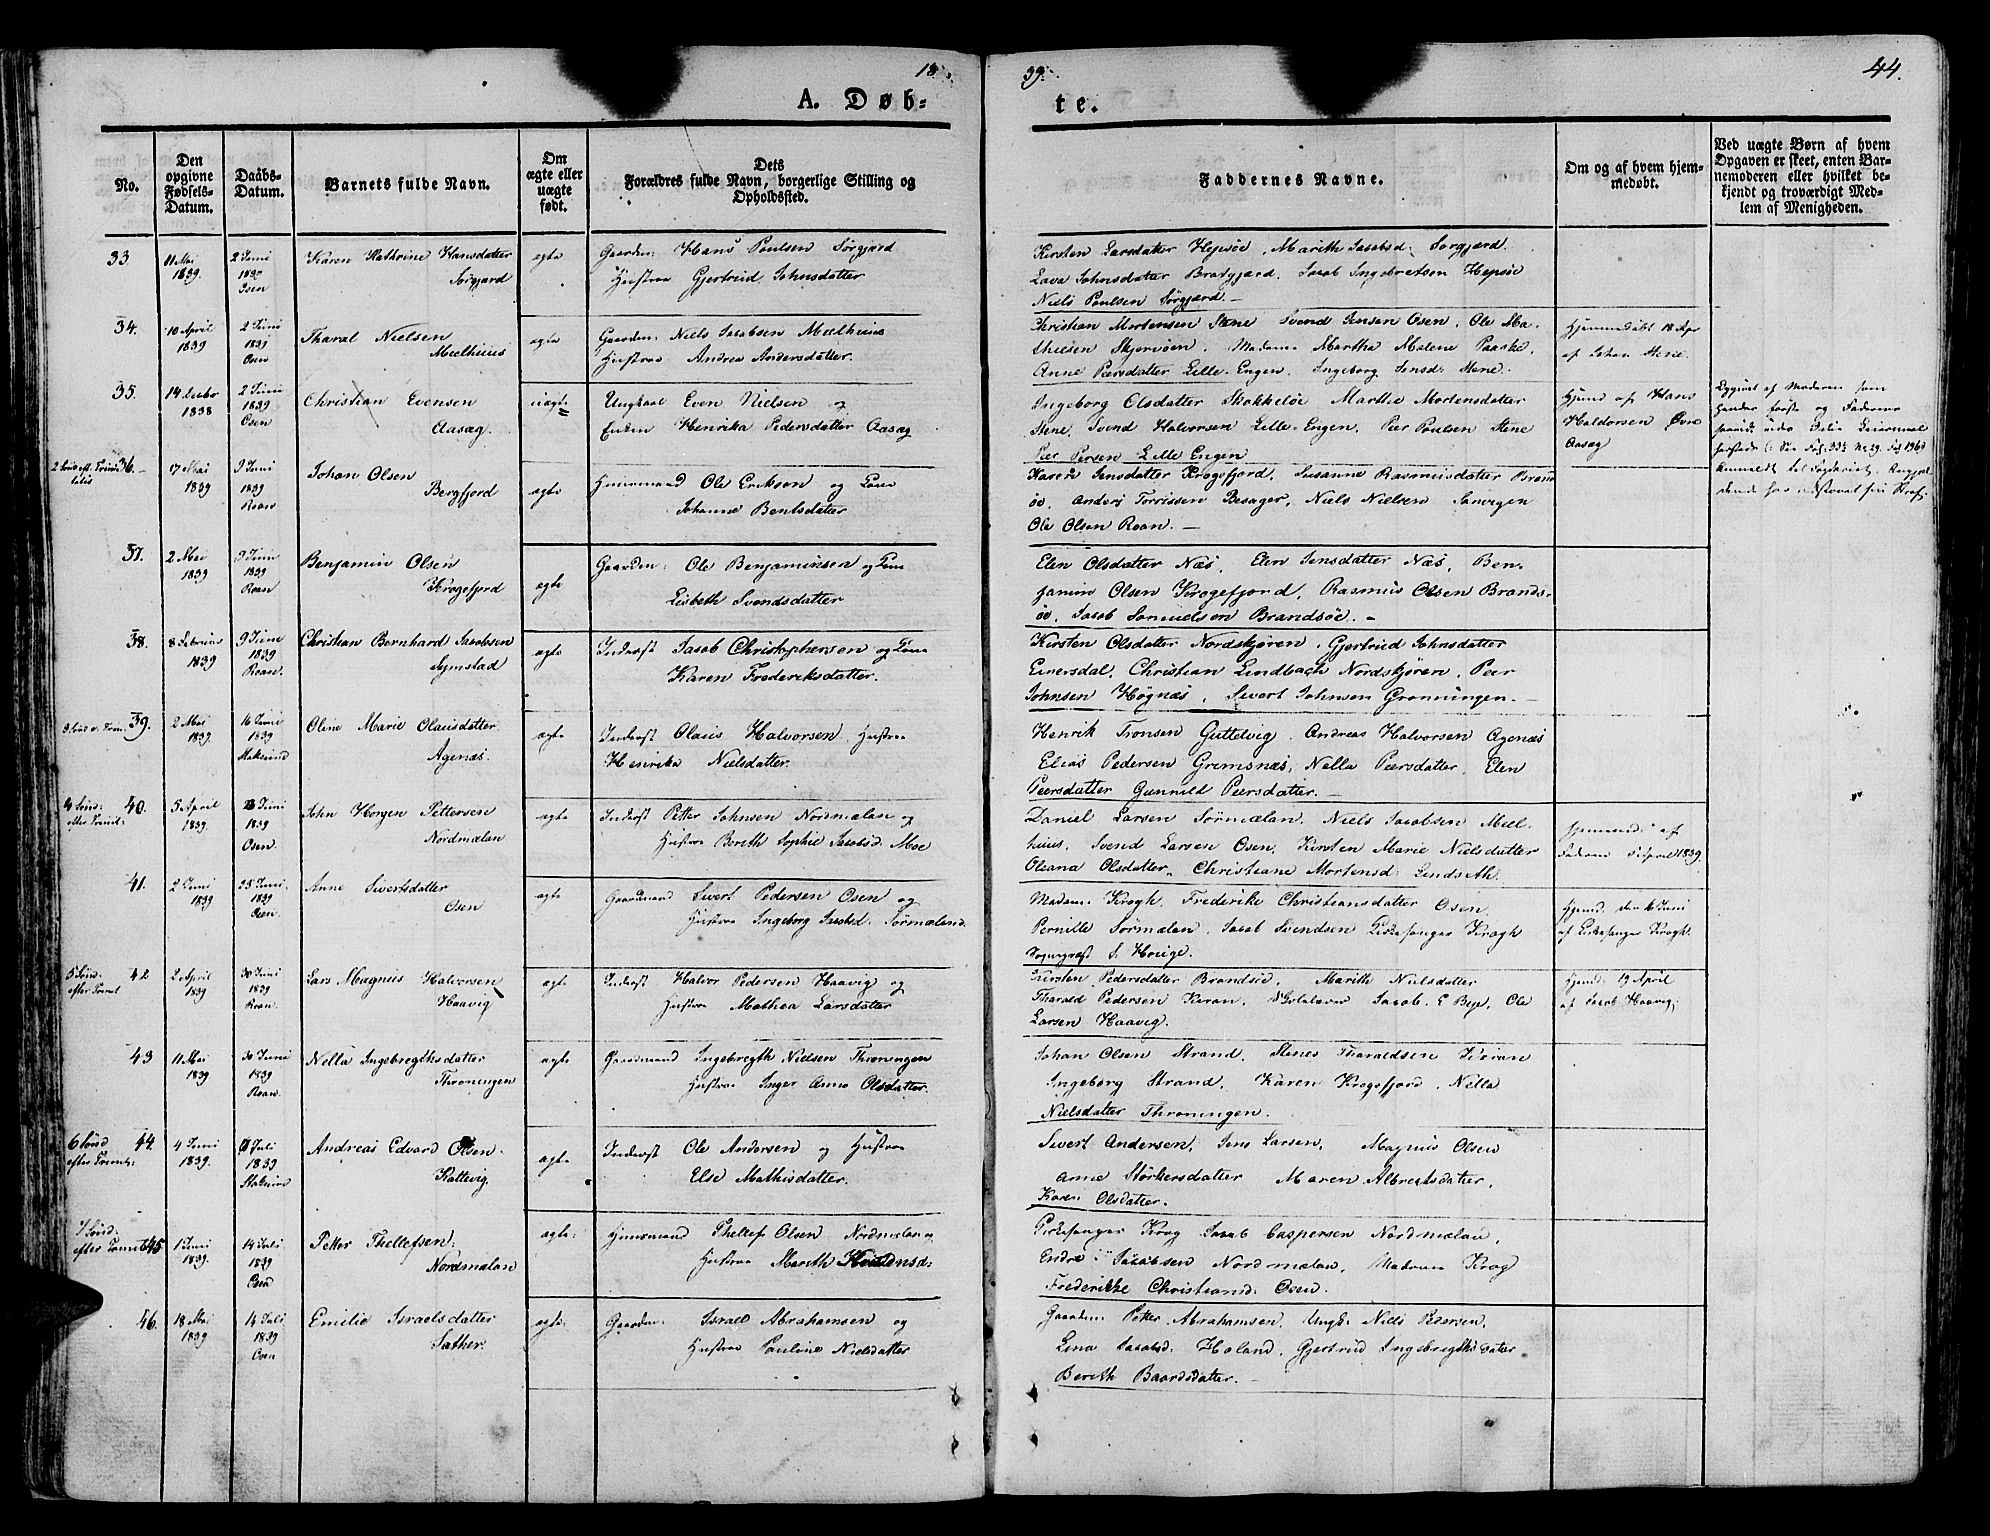 18
39.
44.
A. Døb=
te.
No.
Den opgivne Fødsels-Datum.
Daabs-Datum.
Barnets fulde Navn.
Om ægte eller uægte født.
Dets Forældres fulde Navn, borgerlige Stilling og Opholdssted.
Faddernes Navne.
Om og af hvem hjemmedøbt.
Ved uægte Børn af hvem Opgaven er skeet, enten Barnemoderen eller hvilket bekjendt og troværdigt Medlem af Menigheden.
33. 11 Mai 1839. 2 Juni 1839 Osen
Karen Kathrine Hansdatter
Sørgjerd
ægte
Gaardm: Hans Poulsen Sørgjerd
Hustroe Gjertrud Johnsdatter
Kirsten Larsdatter Hepsøe, Marith Jacobsd: Sørgjerd
Johnsdatter Bratgjerd. Jacob Ingebretsen Hepsøe
Niels Poulsen Sørgjerd.
34. 10 April 1839 2 Juni 1839 Osen
Tharal Nielsen
Mælhuus
ægte
Gaardm: Niels Jacobsen Mælhuus
Hustroe Andrea Andersdatter.
Christian Mortensen Stene Svend Jensen Osen. Ole Ma-
thiesen Skjervøen. Madame Martha Malene Paaske.
Anne Peersdatter Lille-Engen, Ingeborg Jensd: Stene.
Hjemmedøbt 18 Apr
af Johan Stene.
35. 14 1838 2 Juni 1839 Osen
Christian Evensen
Aasæg.
uægte
Ungkarl Even Nielsen og
Enken Henrika Pedersdatter Aasæg
Ingeborg Olsdatter Skokkeløe Marthe Mortensdatter
Stene. Svend Halvorsen Lille-Engen, Peer Poulsen Stene
Peer Persen Lille Engen
Hjemd af Hans
Haldorsen Øvre
Aasæg
af Moderen som
hendes første og Faderens
36. 17 Mai 1839 9 Juni 1839 Roan
Johan Olsen
Bergfjord
ægte
Huusmand Ole Eriksen og Kone
Johanne Bentsdatter
Karen Jensdatter Krogefjord, Susanne Rasmusdatter Brands
øe. Anders Torrissen Besager, Niels Nielsen
Ole Olsen Roan.
37. 2 Mai 1839 9 Juni 1839 Roan
Benjamin Olsen
Krogefjord
ægte
Gaardm: Ole Benjaminsen og Kone
Lisbeth Svendsdatter
Elen Olsdatter Næs, Elen Jensdatter Næs, Ben-
jamin Olsen Krogefjord, Rasmus Olsen Brands-
øe, Jacob Samuelsen Brandsøe.
38. 8 Februar 1839 9 Juni 1839 Roan.
Christian Bernhard Jacobsen
Symstad
ægte
Inderst Jacob Christophersen og Kone
Karen Frederiksdatter.
Kirsten Olsdatter Nordskjøren, Gjertrud Johnsdatter
Einersdal, Christian Lindbach Nordskjøren, Peer
Johnsen Høgnæs, Sivert Johnsen Grønningen.
39. 2 Mai 1839 16 Juni 1839 Stoksund
Oline Marie Olausdatter
Agenæs.
ægte
Inderst Olaus Halvorsen, Hustroe
Henrika Nielsdatter.
Henrik Tronsen Guttelvig, Andreas Halvorsen Agenæs
Elias Pedersen Gremsnæs, Nella Peersdatter, Elen
Peersdatter Gunnild Peersdatter.
4 Sønd: efter Trinit:
40. 5 April 1839. 23 Juni 1839 Osen.
John Horgen Pettersen
Nordmælan
ægte
Inderst Petter Johnsen Nordmælan og
Hustroe Berith Sophie Jacobsd. Moe
Daniel Larsen Sørmælan. Niels Jacobsen Mæl-
huus, Svend Larsen Osen, Kirsten Marie Nielsdatter
Oleana Olsdatter, Christiane Mortensd: Lindseth
Hjemmed: af
Faderen 5 April 1839.
41. 2 Juni 1839 23 Juni 1839 Osen.
Anne Sivertsdatter
Osen
ægte
Gaardmand Sivert Pedersen Osen og
Hustroe Ingeborg Jacobsd: Sørmæland.
Madam: Krogh, Frederike Christiansdatter Osen,
Pernille Sørmælan, Jacob Svendsen Kirkesanger Krogh
Sognepræst S. Houge.
Hjemd: den 6 Juni
af Kirkesanger Krogh.
5 Sønd: efter Trinit
42 2 April 1839 30 Juni 1839 Roan.
Lars Magnus Halvorsen
Haavig
ægte
Inderst Halvor Pedersen Haavig og
Hustroe Mathea Larsdatter
Kirsten Pedersdatter Brandsøe, Marith Nielsdatter
Tharald Pedersen Kiran, Skolelærer Jacob E Bye, Ole
Larsen Haavig.
Hjemd: 19 April
af Jacob Haavig.
43 11 Mai 1839 30 Juni 1839 Roan.
Nella Ingebregthsdatter
Throningen
ægte
Gaardmand Ingebregth Nielsen Throningen
Hustroe Inger Anna Olsdatter.
Johan Olsen Strand, Stenes Tharaldsen Kiran
Ingeborg Strand, Karen Krogefjord, Nella
Nielsdatter Throningen.
6 Sønd efter Trinit:
44. 4 Juni 1839. 7 Juli 1839 Stoksund
Andreas Edvard Olsen.
Kattevig.
ægte
Inderst Ole Andersen og Hustroe
Else Mathisdatter.
Sivert Andersen, Jens Larsen, Magnus Olsen
Anne Størkersdatter Maren Albregtsdatter,
Karen Olsdatter.
7 Sønd: efter Trinit
45 1 Juni 1839. 14 Juli 1839 Osen
Petter Thellefsen.
Nordmælan
ægte:
Huusmand Thellef Olsen Nordmælan og
Hustroe Marith
Kirkesanger Krog Jacob Caspersen Nordmælan,
Endre Jacobsen Nordmælan, Madame Krog
Frederikke Christiansd: Osen.
46. 18 Mai 1839 14 Juli 1839 Osen
Emilie Israelsdatter
Sæther.
ægte:
Gaardm: Israel Abrahamsen og
Hustroe Pauline Nielsdatter
Gaardm: Petter Abrahamsen, Ungk: Niels Pedersen,
Lina Jacobsd: Holand, Gjertrud Ingebregths dater
Berith Baardsdatter.